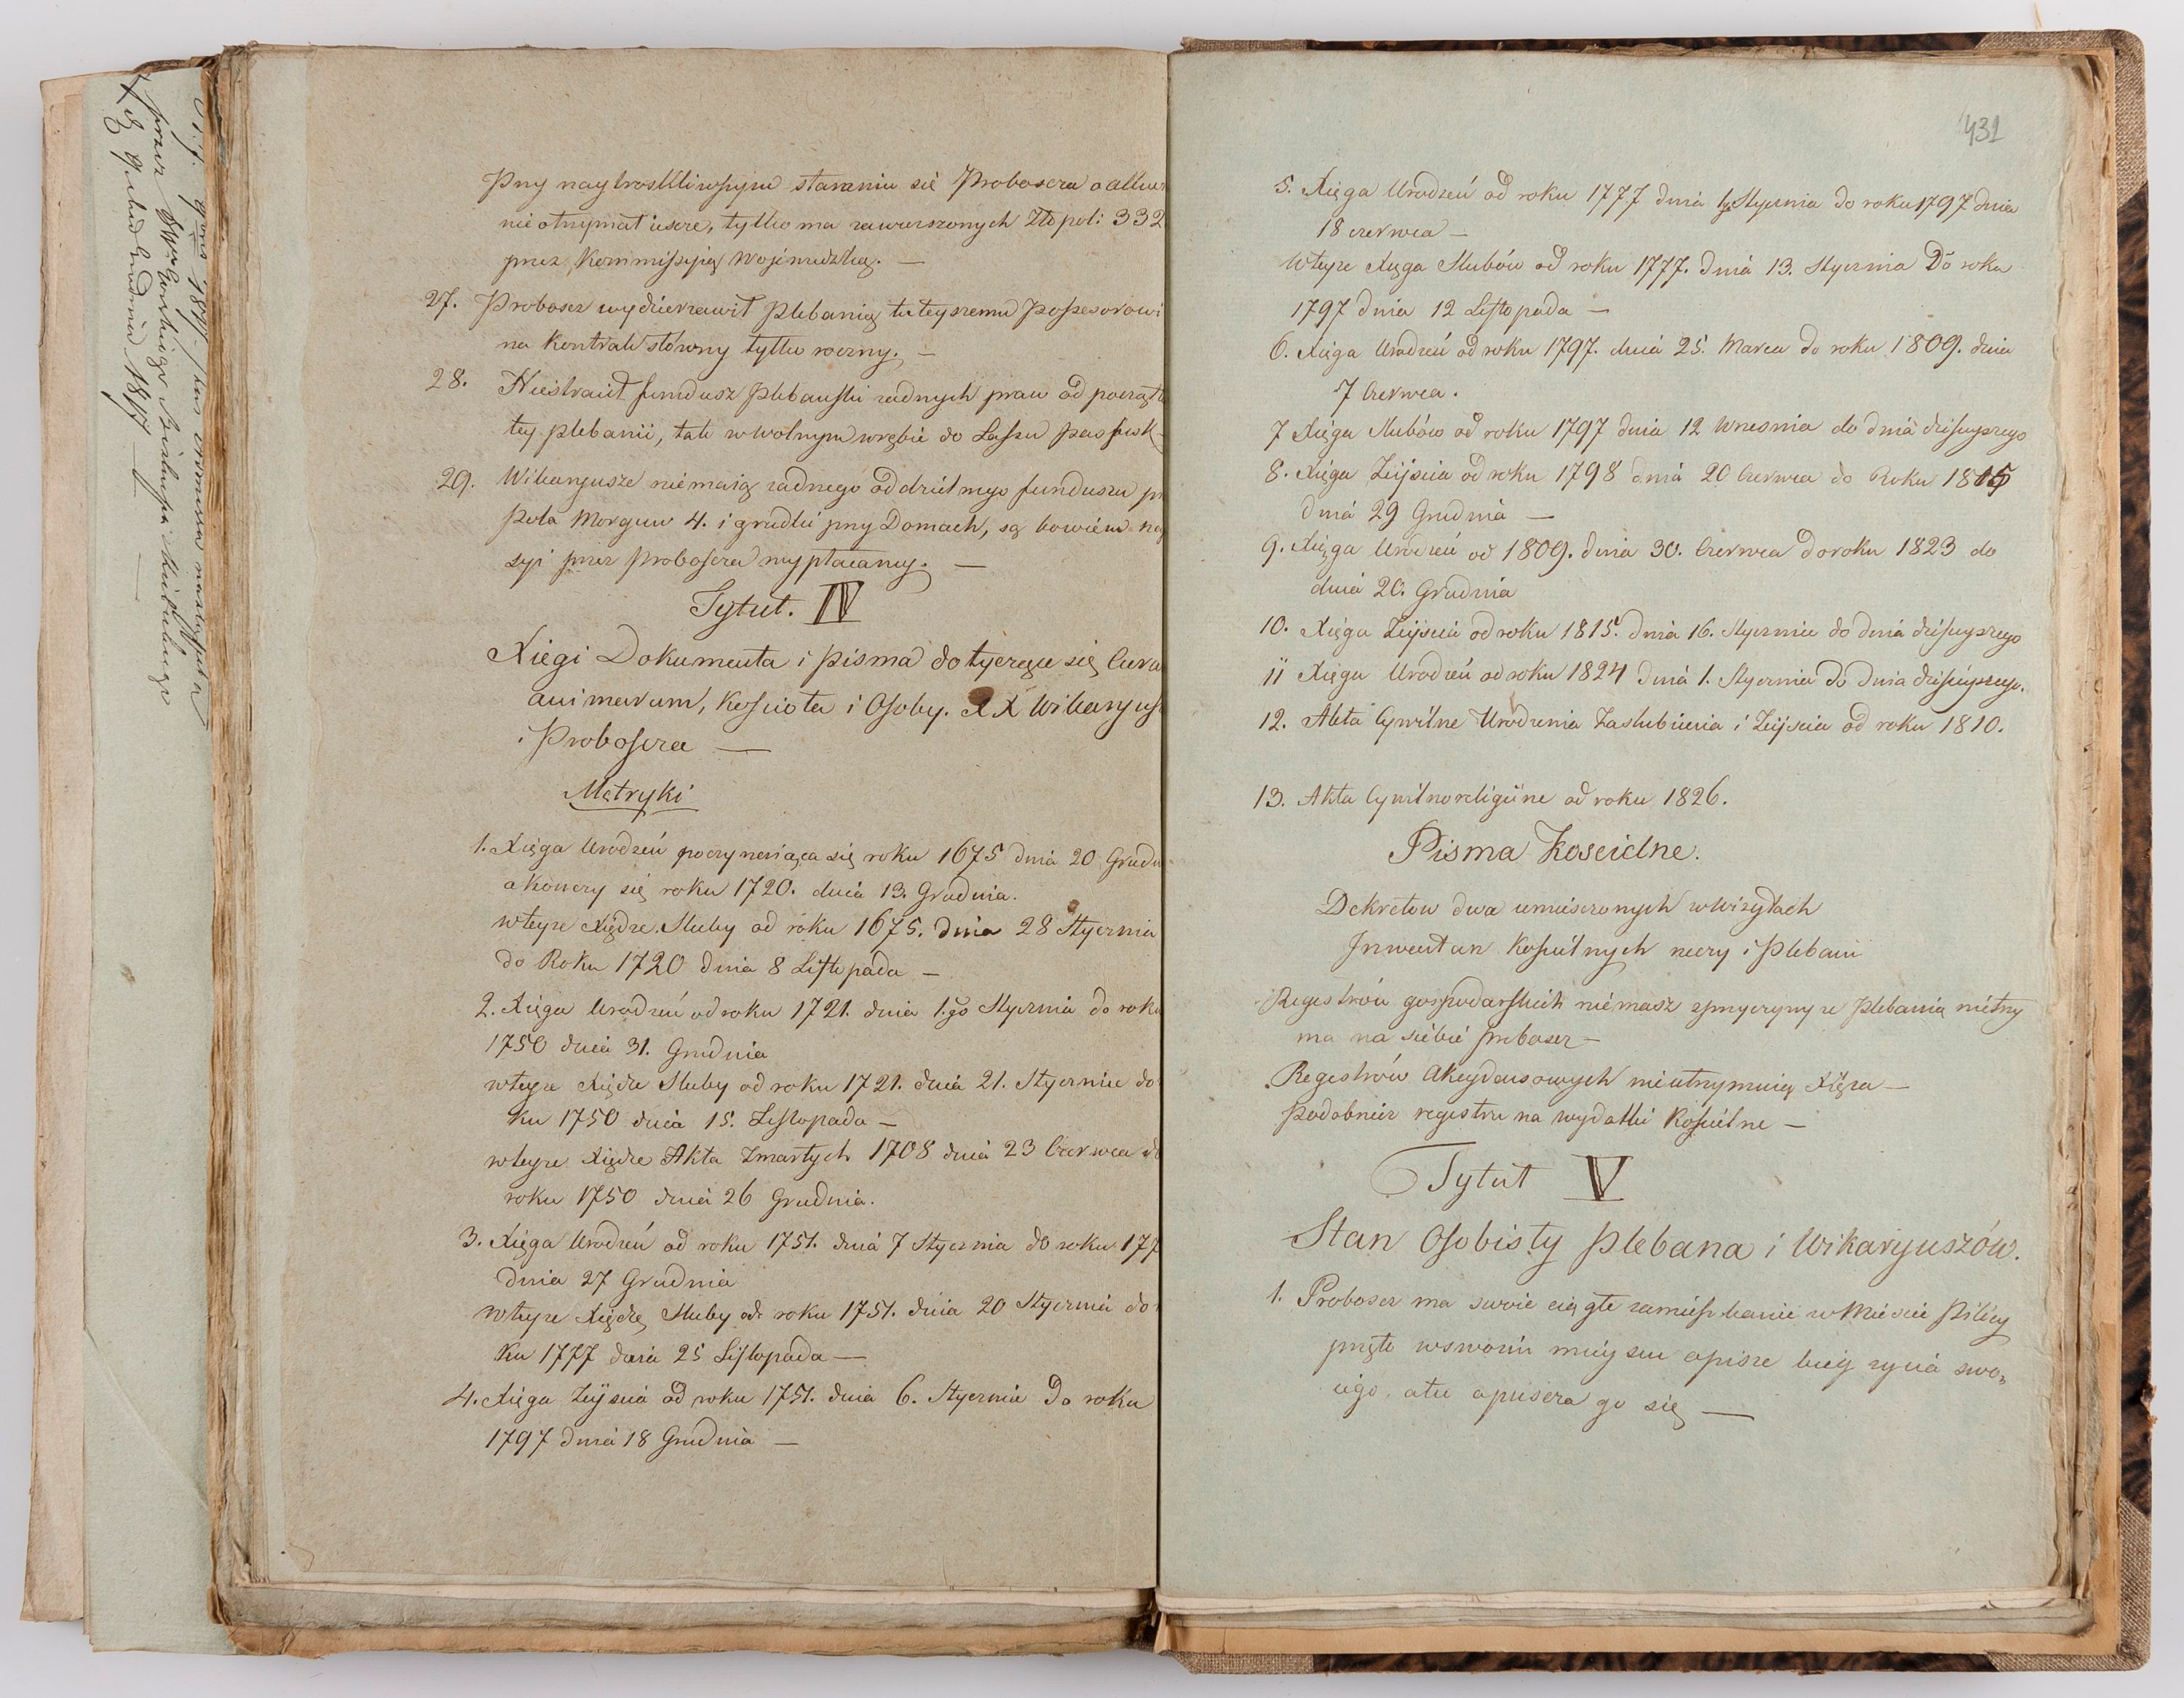 Przy naytroskliwszym staraniu się Proboszcza o
nie otrzymał iescze, tylko ma zawieszonych Złt pol: 332
przez Kommissyią Wojewudzką. —
27. Proboscz wydzierzawił Plebanią tuteyszemu Possesorowi
na Kontrakt słowny tylko roczny. —
28. Niestracił fundusz Plebański zadnych praw od początk
tey plebanii, tak w wolnym wrębie do Lassu
29. Wikaryusze niemaią zadnego oddzielnego funduszu
Pola Morguw 4. i grudki przy Domach, są bowiem
syi przez Proboscza wypłacany. —
Tytuł. IV
Xięgi Dokumenta i pisma dotyczące się Cura
animarum, Kościoła i Osoby. XX Wikaryus
i Proboscza —
Metryki
1. Xięga Urodzeń poczynaiąca się roku 1675 dnia 20 Grudn
a kończy się roku 1720. dnia 13. Grudnia.
wteyze Xiędze Sluby od roku 1675. dnia 28 Stycznia
do Roku 1720 dnia 8 Listopada —
2. Xięga Urodzeń od roku 1721. dnia 1.go Stycznia do roku
1750 dnia 31. Grudnia
wteyze Xiędze Sluby od roku 1721. dnia 21. Stycznia do
ku 1750 dnia 15. Listopada —
wteyze Xiędze Akta Zmarłych 1708 dnia 23 Czerwca do
roku 1750 dnia 26 Grudnia.
3. Xięga Urodzeń od roku 1751. dnia 7 Stycznia do roku 177
dnia 27 Grudnia
wteyze Xiędze Sluby od roku 1751. dnia 20 Stycznia do
ku 1777 dnia 25 Listopada —
4. Xięga Zeyścia od roku 1751. dnia 6. Stycznia do roku
1797 dnia 18 Grudnia —
431
5. Xięga Urodzeń od roku 1777 dnia Stycznia do roku 1797 dnia
18 czerwca —
Wteyze Xięga Slubów od roku 1777. dnia 13. Stycznia Do roku
1797 dnia 12 Listopada —
6. Xięga Urodzeń od roku 1797. dnia 25. Marca do roku 1809. dnia
7 Czerwca.
7 Xięga Slubów od roku 1797 dnia 12 Wresnia do dnia dzisieyszego
8. Xięga Zeyścia od roku 1798 dnia 20 Czerwca do Roku 1815
dnia 29 Grudnia —
9. Xięga Urodzeń od 1809. dnia 30. Czerwca do roku 1823 do
dnia 20. Grudnia
10. Xięga Zeyścia od roku 1815. dnia 16. Stycznia do dnia dzisieyszego
11 Xięga Urodzeń od roku 1824 dnia 1. Stycznia do dnia dzisieyszego.
12. Akta Cywilne Urodzenia Zaslubienia i Zeyścia od roku 1810.
13. Akta Cywilnoreligiine od roku 1826.
Pisma Koscielne.
Dekretow dwa umieszczonych w Wizytach
Inwentarz Kościelnych rzeczy i Plebani
Regestrów gospodarskich niemasz zprzyczyny ze Plebanią nietrzy
ma na siebie proboscz —
Regestrów Akcydensowych nieutrzymuią Xięza —
Podobniez regestru na wydatki Kościelne —
Tytuł V
Stan Osobisty Plebana i Wikaryuszów.
1. Proboscz ma swoie ciągłe zamieszkanie w Mieście Pilicy
przeto wswoim mieyscu opisze bieg zycia swo„
iego, a tu opuszcza go się —